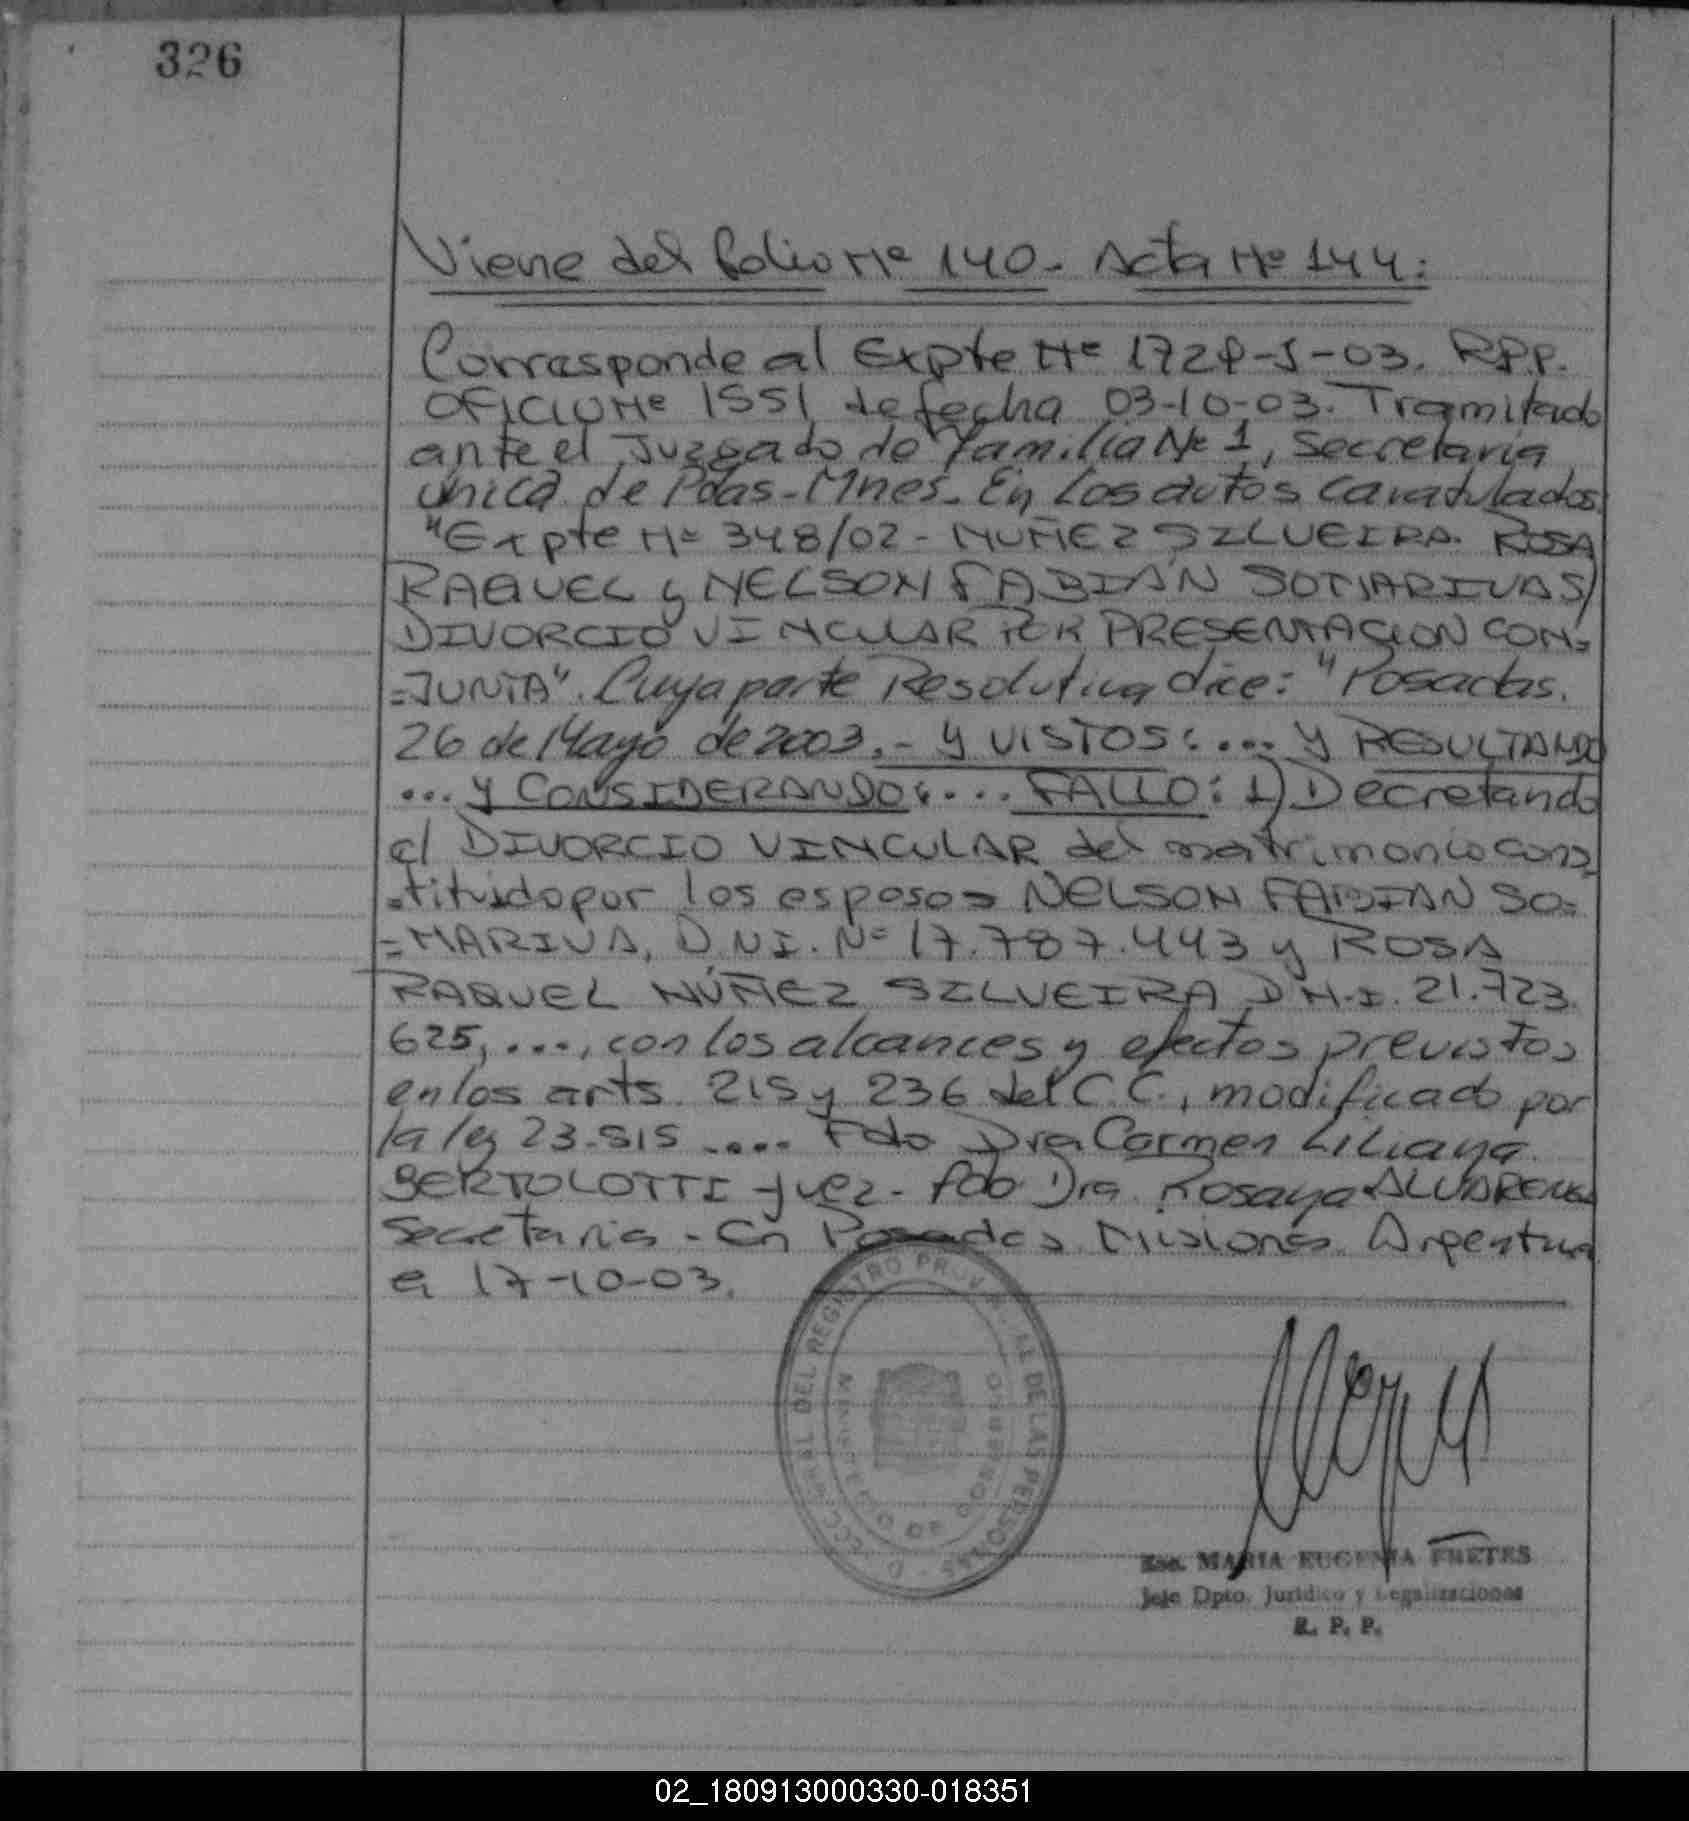 326
Viene del folio Nº 140 - Acta Nº 144:
Corresponde al Expte Nº 1728-S-03. R.P.P.
OFICIO Nº 1551 de fecha 03-10-03. Tramitado
ante el Juzgado de Familia Nº 1, secretaria
única de Pdas - Mnes. En los autos caratulados
"Expte Nº 348/02 - NUÑEZ SILVEIRA ROSA
RAQUEL y NELSON FABIÁN SOMARIVA S/
DIVORCIO VINCULAR POR PRESENTACION CON=
=JUNTA". Cuya parte Resolutiva dice: "Posadas,
26 de Mayo de 2003.- Y VISTOS:... Y RESULTANDO
... Y CONSIDERANDO:... FALLO: 1) Decretando
el DIVORCIO VINCULAR del matrimonio cons=
=tituido por los esposos NELSON FABIAN SO=
=MARIVA, D.N.I. Nº 17.787.443 y ROSA
RAQUEL NÚÑEZ SILVEIRA D.N.I. 21.723.
625, ..., con los alcances y efectos previstos
en los arts. 215 y 236 del C.C., modificado por
la ley 23.515 .... Fdo Dra Carmen Liliana
BERTOLOTTI - Juez - Fdo Dra. Rosana ALVARENGA
Secretaria - En Posadas Misiones Argentina
a 17-10-03.
DEL REGISTRO PROV. DE LAS PERSONAS
MINISTERIO DE GOBIERNO
Esc. MARIA EUGENIA FRETES
Jefe Dpto. Jurídico y Legalizaciones
R. P. P.
02_180913000330-018351